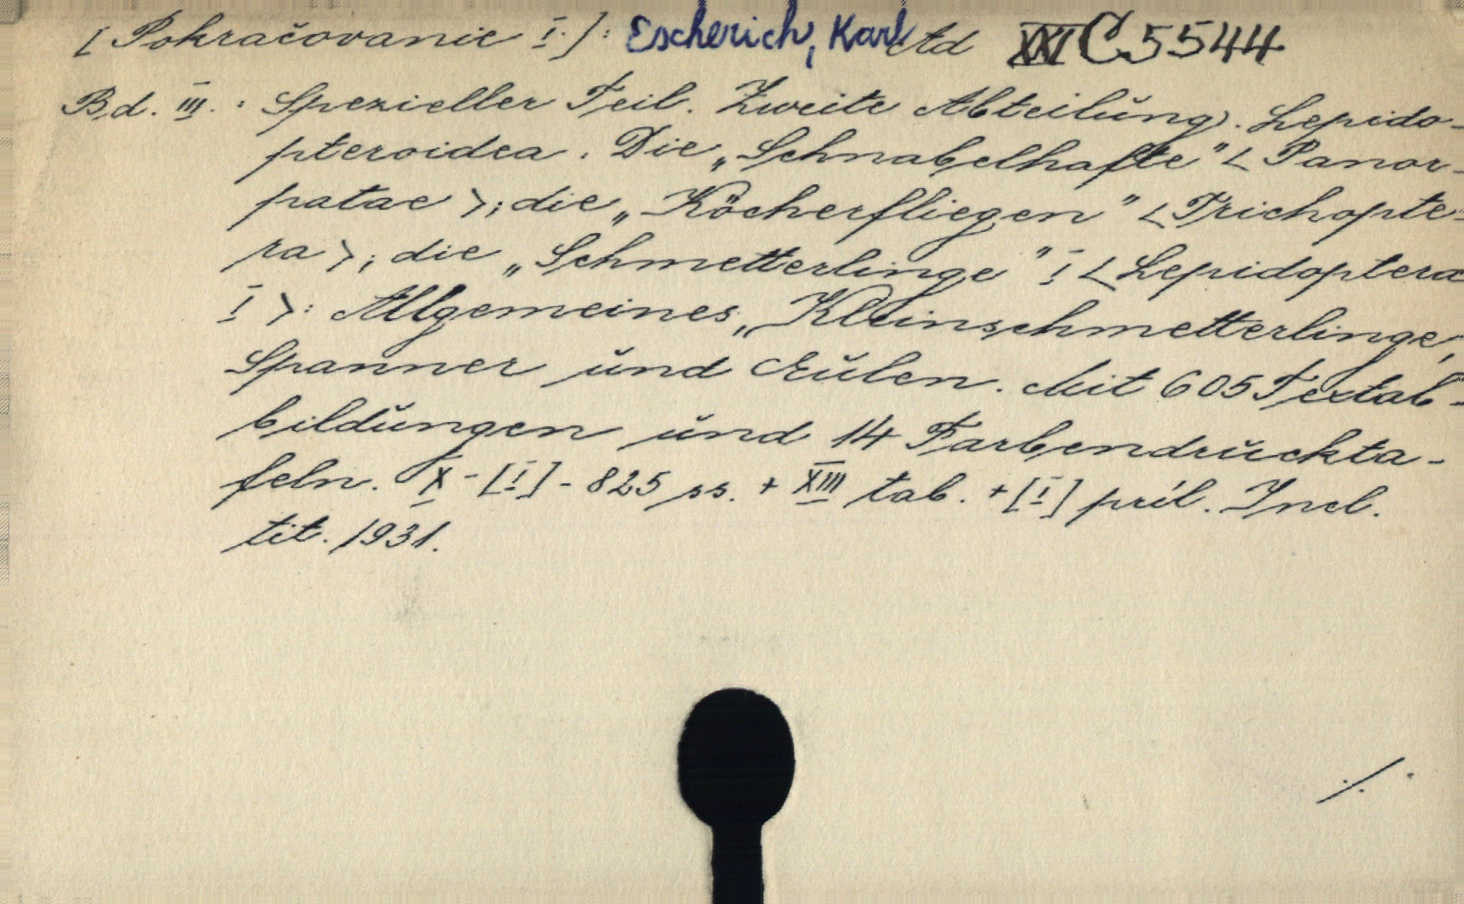 [Pokračovanie I.]: Escherich, Karl Ad XXI C 5544
Bd. III. : Spezieller Teil. Zweite Abteilŭng. Lepido-
pteroidea. Die „Schnabelhafte" < Panor-
patae >; die „Köcherfliegen" < Trichopte-
ra >; die „Schmetterlinge" I < Lepidoptera
I >: Allgemeines, „Kleinschmetterlinge,
Spanner ŭnd Eŭlen. Mit 605 Textab-
bildŭngen ŭnd 14 Farbendrŭckta-
feln. X - [I] - 825 ss. + XIII tab. + [I] príl. Incl.
tit. 1931.
./.